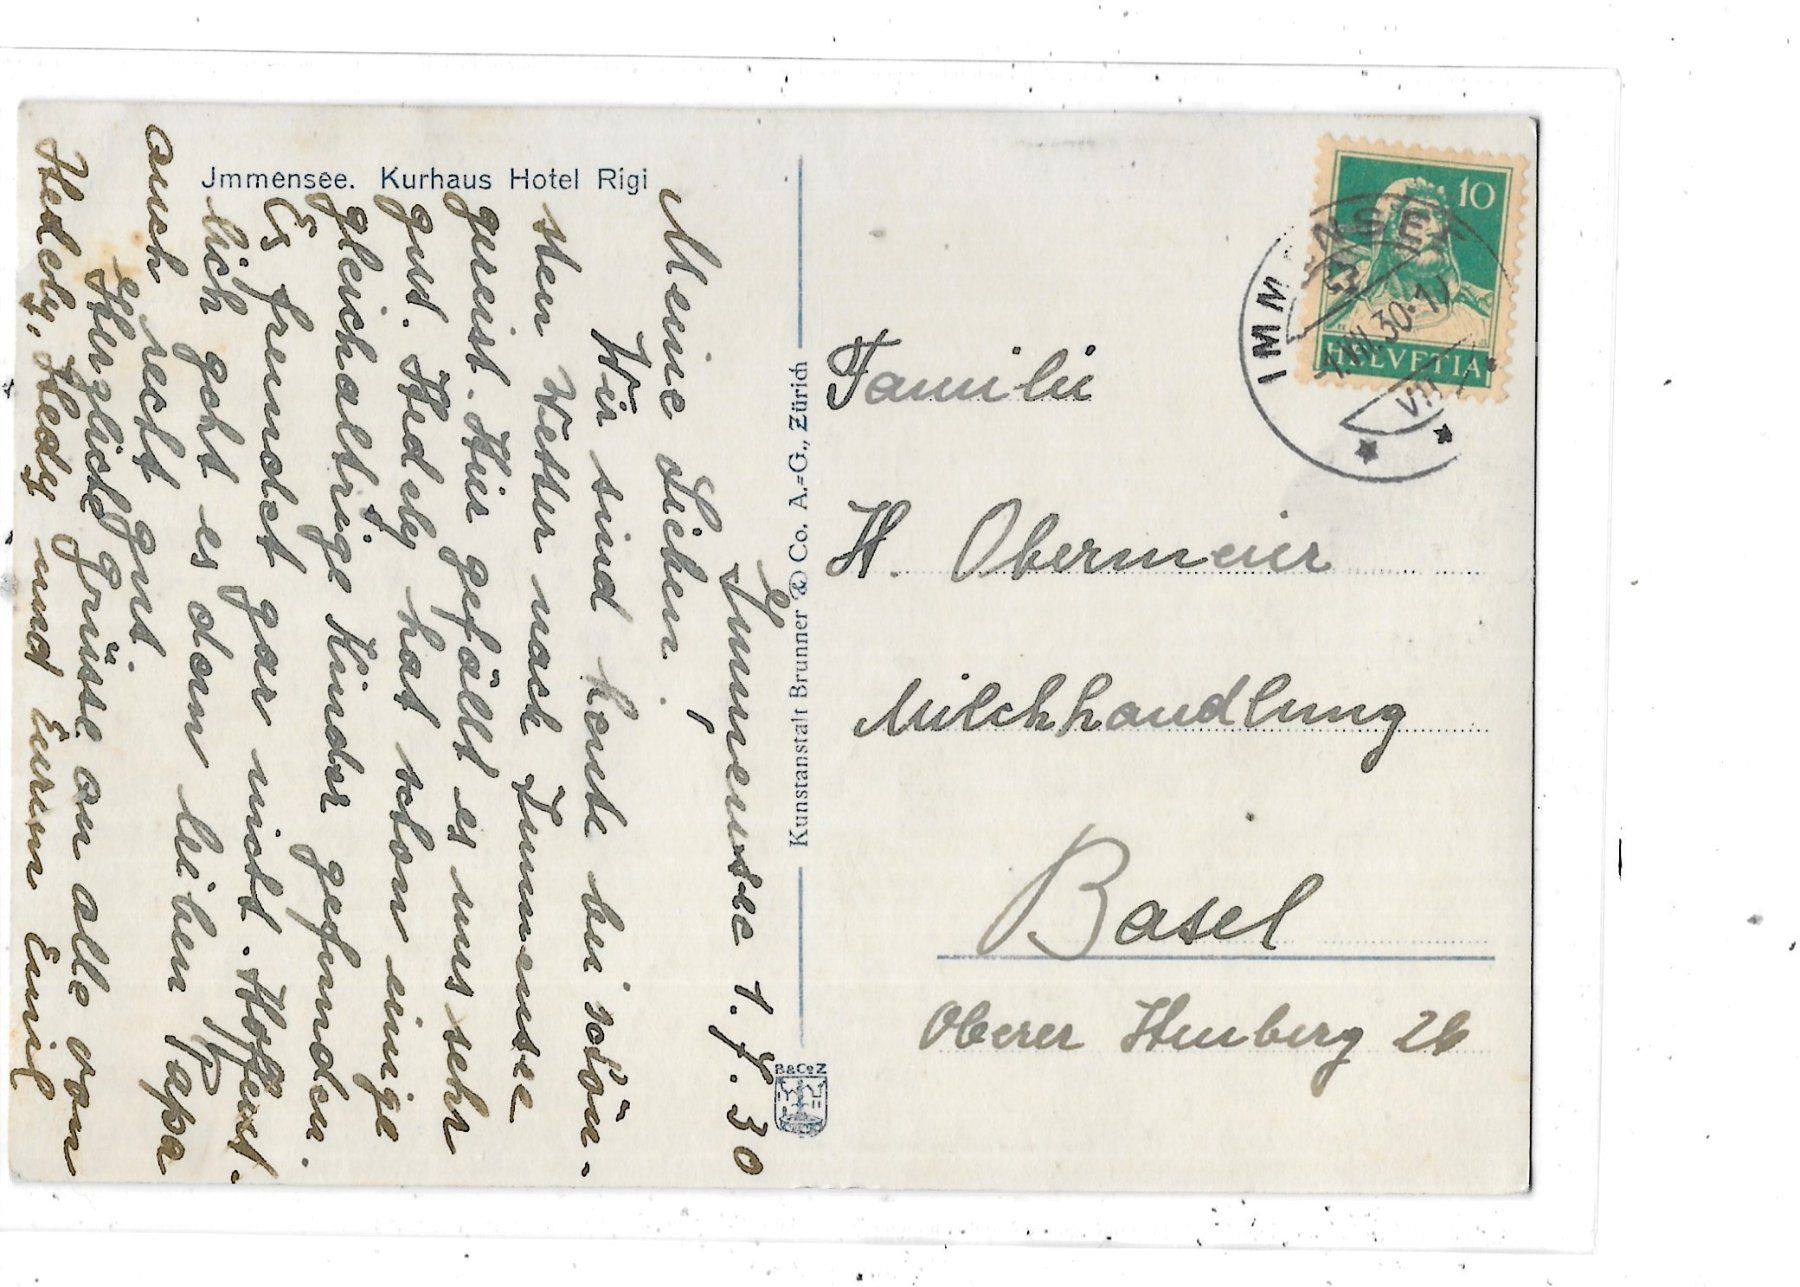 Jmmensee. Kurhaus Hotel Rigi
Immensee 1. 7. 30
Meine Lieben!
Wir sind heute bei schön-
sten Wetter nach Immensee
gereist. Hier gefällt es uns sehr
gut. Hedely hat schon einige
gleichaltrige Kinder gefunden.
Es fremdet gar nicht. Hoffent-
lich geht es dem lieben Papa
auch recht gut.
Herzliche Grüsse an alle von
Hedely, Hedy und Eurem Emil
Kunstanstalt Brunner & Co. A.=G., Zürich
B&CoZ
10
HELVETIA
IMMENSEE
30.17
VII
Familie
H. Obermeier
Milchhandlung
Basel
Oberer Heuberg 26